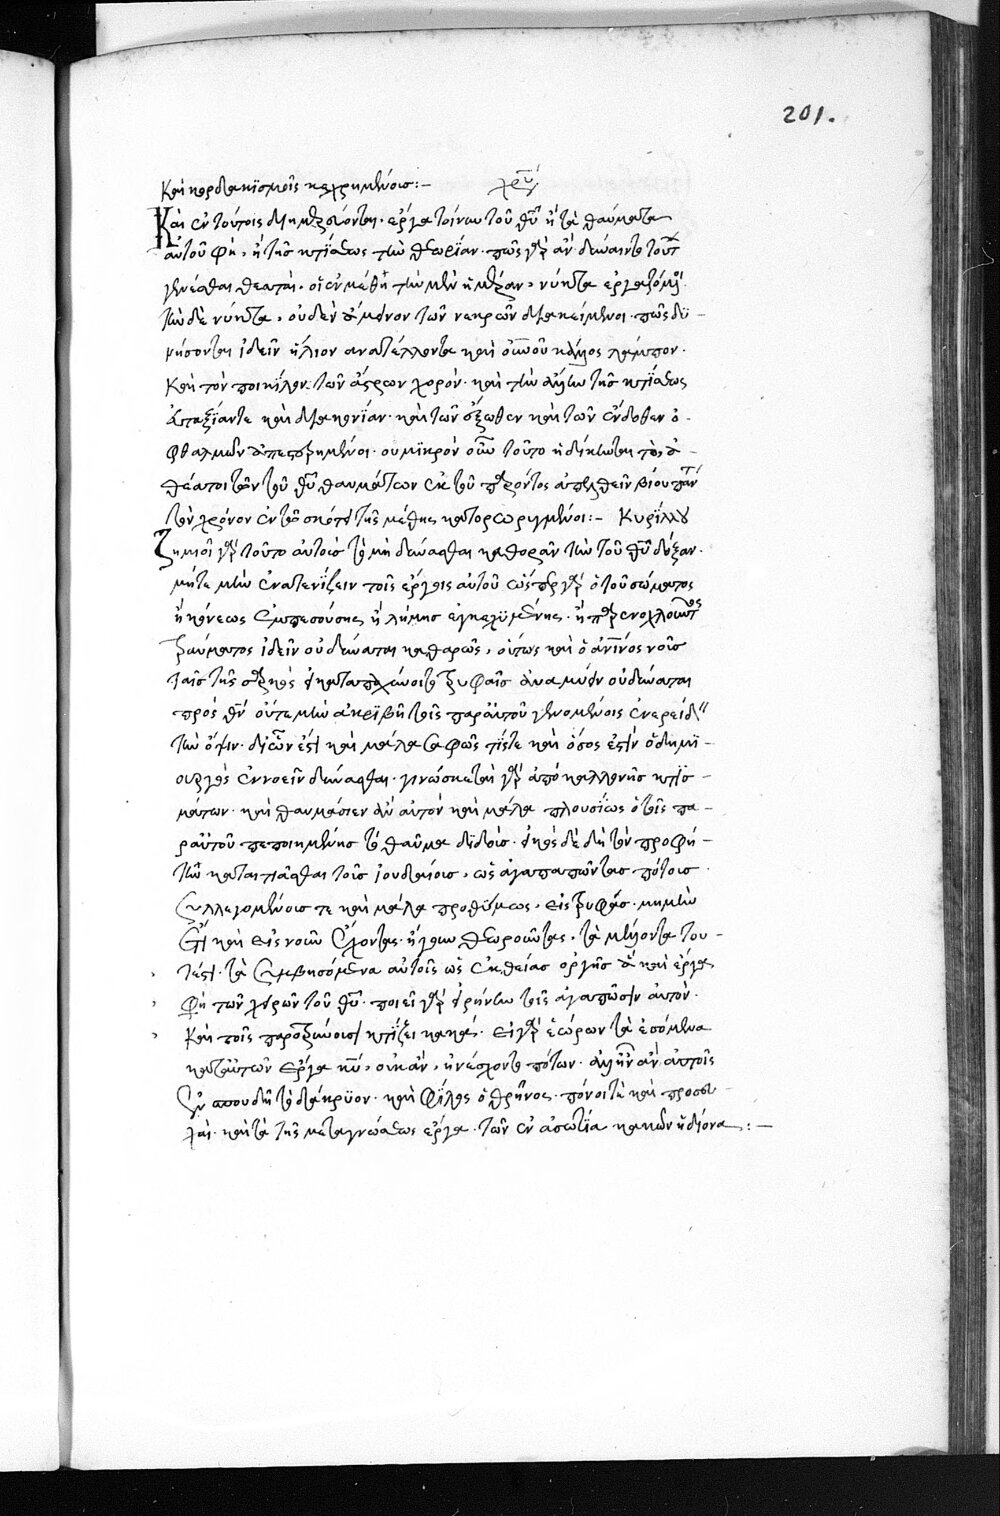 201.
Καὶ κορδακϊσμοῖς κεχρημένοις :– χρυ
Καὶ ἐν τούτοις διημερεύοντες. ἔργα τοίνυν τοῦ θυ ἢ τὰ θαύματα
αὐτοῦ φη, ἢ τῆς κτίσεως τὴν θεωρίαν. πῶς γὰρ ἂν δύναιντο τούτ
γενέσθαι θεαταὶ. οἱ ἐν μέθη τὴν μὲν ἡμέραν, νύκτα ἐργαζόμοι.
τὴν δὲ νύκτα, οὐδὲν ἄμεινον τῶν νεκρῶν διακείμενοι. πῶς δὺ-
νήσονται ἰδεῖν ἥλιον ἀνατέλλοντα καὶ οὐνοῦ κάλλος λάμπον.
Καὶ τὸν ποικίλον τῶν ἄστρων χορόν. καὶ τὴν ἄλλην τῆς κτίσεως
ἁπαξάπαντα καὶ διακονίαν. καὶ τῶν ἔξωθεν καὶ τῶν ἔνδοθεν ὀ-
φθαλμῶν ἀπεστερημένοι. οὐ μικρὸν οὖν τοῦτο ἠδίκηνται τὸ, ἀ-
θέατοι τῶν τοῦ θυ θαυμάτων ἐκ τοῦ παρόντος ἀπελθεῖν βίου πάντ
τὸν χρόνον ἐν τῶ σκότει τῆς μέθης κατορωρυγμένοι :– Κυρίλλου
Ζημιοῖ γὰρ τοῦτο αὐτοὺς τὸ μὴ δύνασθαι καθορᾶν τὴν τοῦ θυ δόξαν.
μήτε μὴν ἐνατενίζειν τοῖς ἔργοις αὐτοῦ ὥσπερ γὰρ ὁ τοῦ σώματος
ἢ κόνεως ἐμπεσούσης ἢ λήμης ἐγκεχυμένης. ἢ παρενοχλοῦντος
τραύματος ἰδεῖν οὐ δύναται καθαρῶς, οὕτως καὶ ὁ ἀνινος νοῦς
ταῖς τῆς σαρκὸς
πρὸς θν οὔτε μὴν ἀκριβῆ τοῖς παρ' αὐτοῦ γενομένοις ἐνερείδ
τὴν ὄψιν. δι' ὧν ἐστὶ καὶ μάλα σαφῶς τίς τε καὶ ὅσος ἐστὶν ὁ δημι-
ουργὸς ἐννοεῖν δύνασθαι. γινώσκεται γὰρ ἀπὸ καλλονῆς κτισ-
μάτων. καὶ θαυμάσειεν ἂν αὐτὸν καὶ μάλα πλουσίως ὁ τοῖς πα-
ρ' αὐτοῦ πεποιημένοις τὸ θαῦμα διδοὺς. εἰκὸς δὲ δὴ τὸν προφή-
την καταιτιᾶσθαι τοῖς ἰουδαίοις, ὡς ἀγαπῶντας πότοις
συλλεγομένοις τε καὶ μάλα προθύμως, εἰς τρυφὰς. μὴ μὴν
ἔτι καὶ εἰς νοῦν ἔχοντας. ἤγουν θεωροῦντας, τὰ μέλλοντα του-
τέστι. τὰ συμβησόμενα αὐτοῖς ὡς ἐκ θείας ὀργῆς ἃ καὶ ἔργα
φη τῶν χειρῶν τοῦ θυ. ποιεῖ γὰρ εἰρήνην τοῖς ἀγαπῶσιν αὐτὸν.
Καὶ τοῖς παροξύνουσι κτίζει κακά. εἰ γὰρ ἑώρων τὰ ἐσόμενα
κατ' αὐτῶν ἔργα κυ, οὐκ ἂν, ἠνέσχοντο πότων. ἀλλ' ἦν ἂν αὐτοῖς
ἐν σπουδῆ τὸ δάκρυον. καὶ φίλος ὁ θρῆνος. πόνοι τὲ καὶ προσευ-
χαὶ. καὶ τὰ τῆς μεταγνώσεως ἔργα. τῶν ἐν ἀσωτία κακῶν ἡδίονα :–